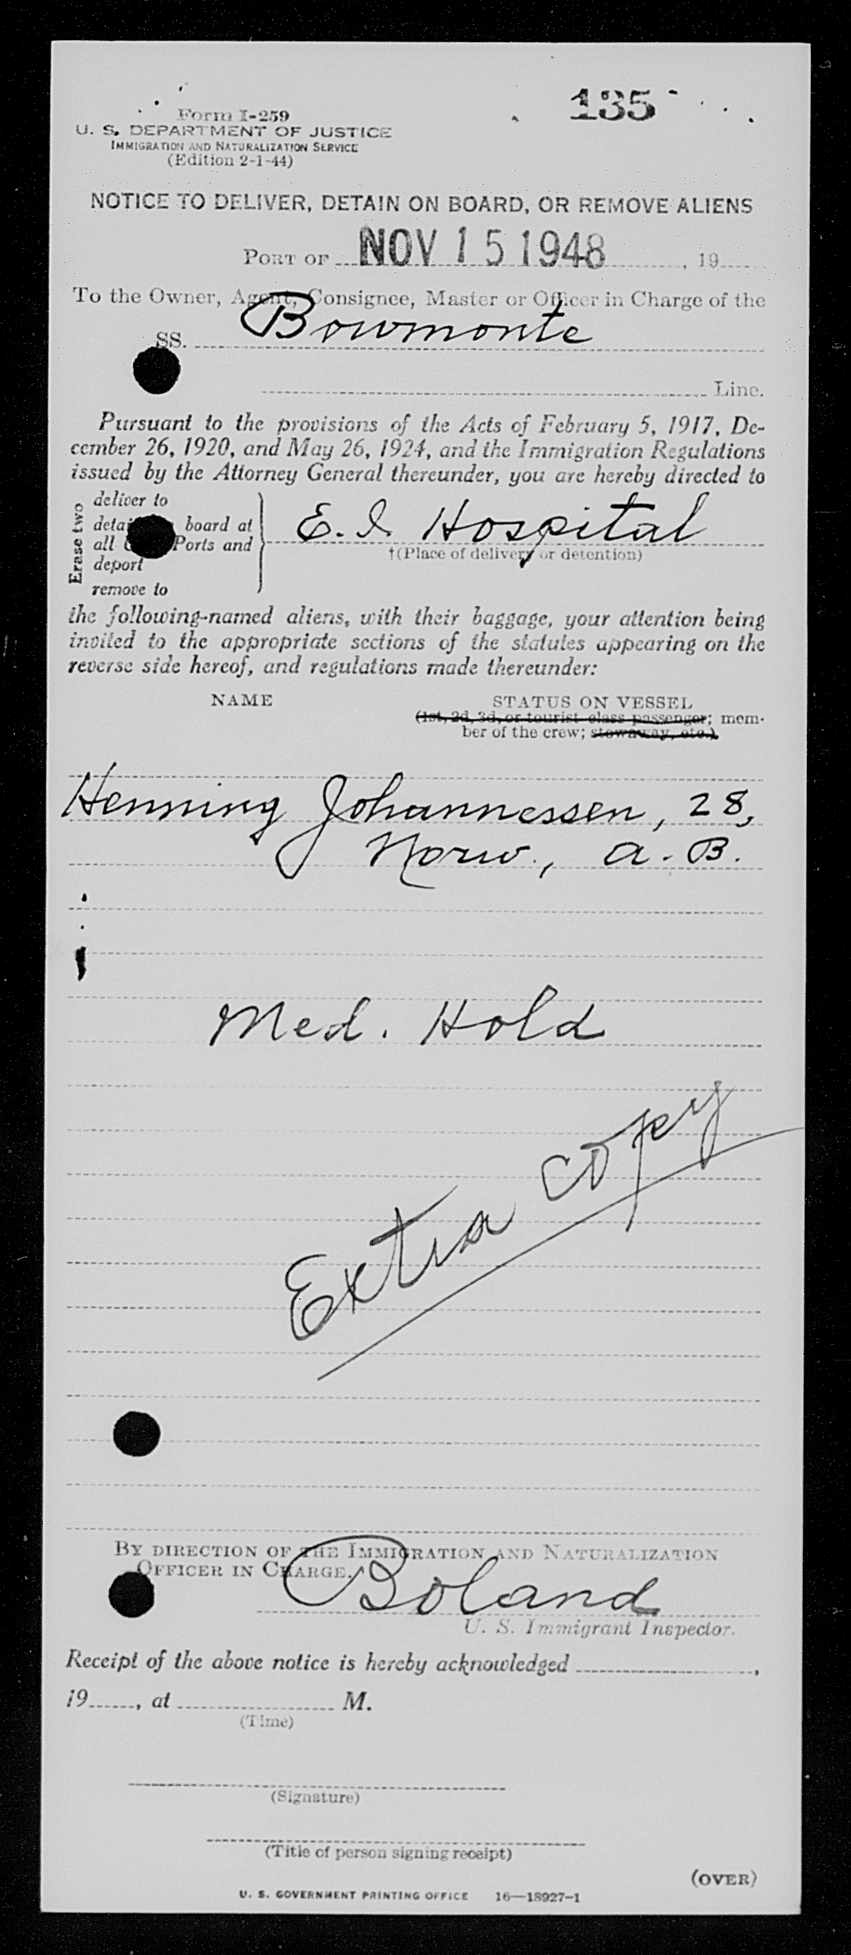 135
Form I-259
U. S. DEPARTMENT OF JUSTICE
IMMIGRATION AND NATURALIZATION SERVICE
(Edition 2-1-44)
NOTICE TO DELIVER, DETAIN ON BOARD, OR REMOVE ALIENS
PORT OF NOV 15 1948, 19
To the Owner, Agent, Consignee, Master or Officer in Charge of the
SS. Bowmonte
Line.
Pursuant to the provisions of the Acts of February 5, 1917, De-
cember 26, 1920, and May 26, 1924, and the Immigration Regulations
issued by the Attorney General thereunder, you are hereby directed to
Erase two
deliver to
board at
all Ports and
deport
remove to
E. I. Hospital
†(Place of delivery or detention)
the following-named aliens, with their baggage, your attention being
invited to the appropriate sections of the statutes appearing on the
reverse side hereof, and regulations made thereunder:
NAME STATUS ON VESSEL
(1st, 2d, 3d, or tourist class passenger; mem-
ber of the crew; stowaway, etc.)
Henning Johannessen, 28,
Norw., A.B.
Med. Hold
Extra copy
BY DIRECTION OF THE IMMIGRATION AND NATURALIZATION
OFFICER IN CHARGE.
Boland
U. S. Immigrant Inspector.
Receipt of the above notice is hereby acknowledged ,
19 , at M.
(Time)
(Signature)
(Title of person signing receipt)
(OVER)
U. S. GOVERNMENT PRINTING OFFICE 16—18927-1